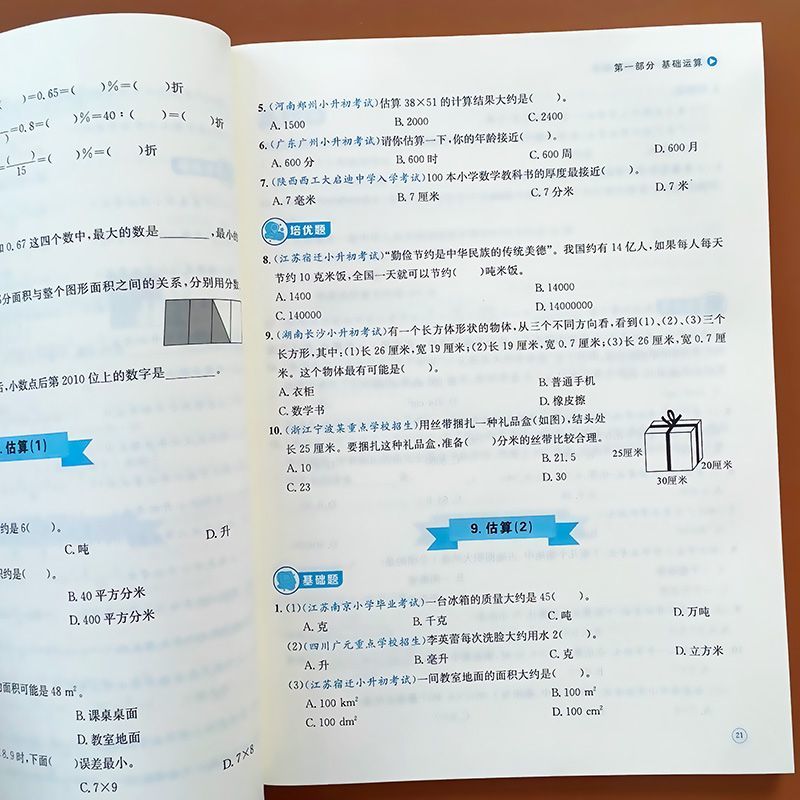 (  )=0.65=(  )%=(  )折
=0.8=(  )%=40∶(  )=(  )折
(  )
15
=(  )%=(  )折
0.67 这四个数中,最大的数是______,最小的
分面积与整个图形面积之间的关系,分别用分数
,小数点后第 2010 位上的数字是______。
估算(1)
约是 6(  )。
C. 吨
D. 升
积约是(  )。
B. 40 平方分米
D. 400 平方分米
面积可能是 48 m²。
B. 课桌桌面
D. 教室地面
8.9 时,下面(  )误差最小。
C. 7×9
D. 7×8
第一部分 基础运算
5. (河南郑州小升初考试)估算 38×51 的计算结果大约是(  )。
A. 1500 B. 2000 C. 2400
6. (广东广州小升初考试)请你估算一下,你的年龄接近(  )。
A. 600 分 B. 600 时 C. 600 周 D. 600 月
7. (陕西西工大启迪中学入学考试)100 本小学数学教科书的厚度最接近(  )。
A. 7 毫米 B. 7 厘米 C. 7 分米 D. 7 米
培优题
8. (江苏宿迁小升初考试)“勤俭节约是中华民族的传统美德”。我国约有 14 亿人,如果每人每天
节约 10 克米饭,全国一天就可以节约(  )吨米饭。
A. 1400 B. 14000
C. 140000 D. 14000000
9. (湖南长沙小升初考试)有一个长方体形状的物体,从三个不同方向看,看到(1)、(2)、(3)三个
长方形,其中:(1)长 26 厘米,宽 19 厘米;(2)长 19 厘米,宽 0.7 厘米;(3)长 26 厘米,宽 0.7 厘
米。这个物体最有可能是(  )。
A. 衣柜 B. 普通手机
C. 数学书 D. 橡皮擦
10. (浙江宁波某重点学校招生)用丝带捆扎一种礼品盒(如图),结头处
长 25 厘米。要捆扎这种礼品盒,准备(  )分米的丝带比较合理。
A. 10 B. 21.5
C. 23 D. 30
25厘米
20厘米
30厘米
9. 估算(2)
基础题
1. (1)(江苏南京小学毕业考试)一台冰箱的质量大约是 45(  )。
A. 克 B. 千克 C. 吨 D. 万吨
(2)(四川广元重点学校招生)李英蕾每次洗脸大约用水 2(  )。
A. 升 B. 毫升 C. 克 D. 立方米
(3)(江苏宿迁小升初考试)一间教室地面的面积大约是(  )。
A. 100 km² B. 100 m²
C. 100 dm² D. 100 cm²
21